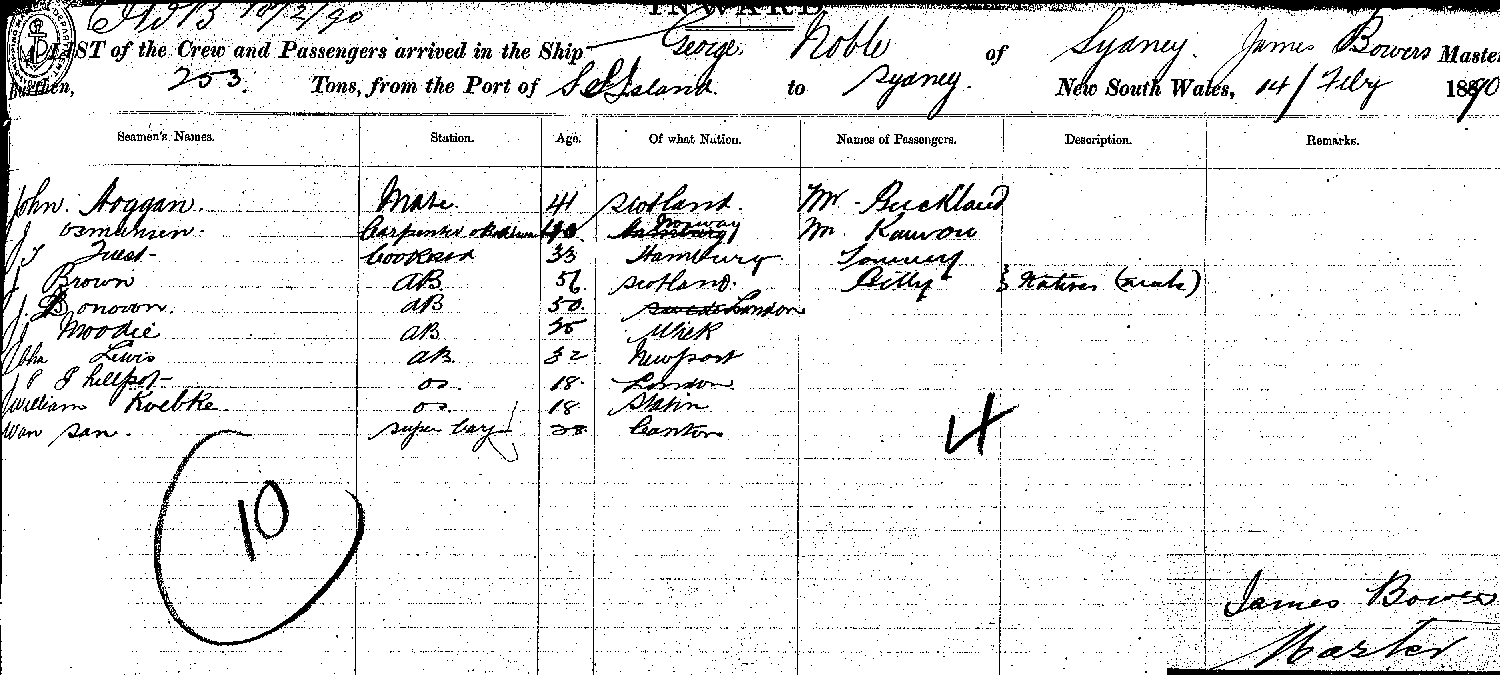 INWARD
10/2/90
LIST of the Crew and Passengers arrived in the Ship George Noble of Sydney. James Bowers Master
Burthen, 253. Tons, from the Port of S S Island. to Sydney. New South Wales, 14/Feby 1890
Seamen's Names. Station. Age. Of what Nation. Names of Passengers. Description. Remarks.
John. Hoggan. Mate. 41 Scotland. Mr. Buckland
J Osmunsen. Carpenter 40 Hamburg Norway Mr.
J T Cook 33 Hamburg Tommy
J Brown AB 56 Scotland. Billy } Natives (male)
J. Donovon. AB 50. Swede London
J Moodie AB 35 Wick
John Lewis AB 32 Newport
J P Phillpot OS 18. London
William Koebke. OS 18 Statin
Wan San. super cargo 28 Canton
4
10
James Bowers
Master